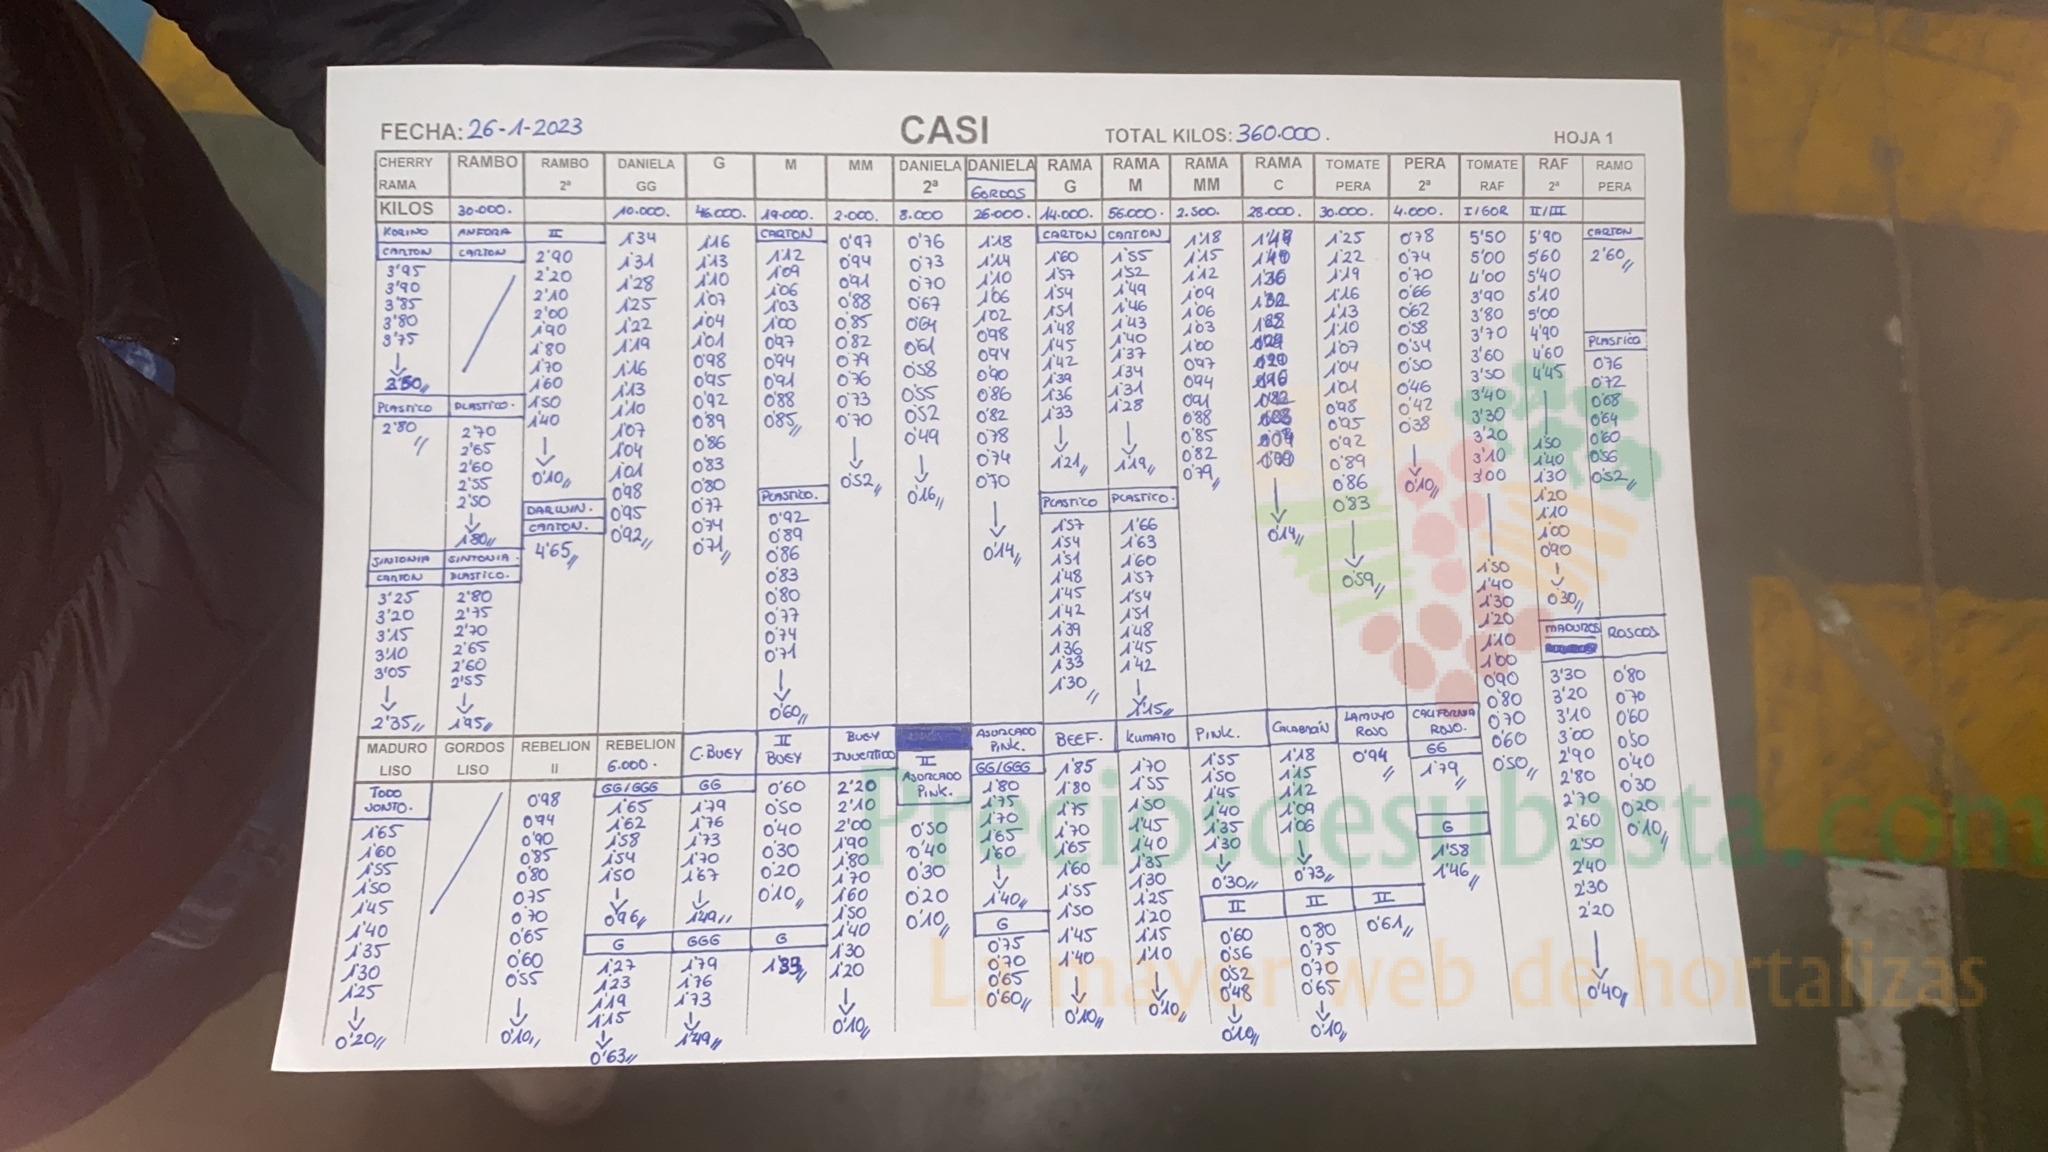 FECHA: 26-1-2023 CASI TOTAL KILOS: 360.000. HOJA 1
CHERRY RAMA RAMBO RAMBO 2ª DANIELA GG G M MM DANIELA 2ª DANIELA GORDOS RAMA G RAMA M RAMA MM RAMA C TOMATE PERA PERA 2ª TOMATE RAF RAF 2ª RAMO PERA
KILOS 30.000. 10.000. 46.000. 19.000. 2.000. 8.000 26.000. 14.000. 56.000. 2.500. 28.000. 30.000. 4.000. I/GOR II/III
KORINO
CARTON
3'95
3'90
3'85
3'80
3'75
↓
PLASTICO
2'80 //
SINTONIA
CARTON
3'25
3'20
3'15
3'10
3'05
↓
2'35 //
ANFORA
CARTON
PLASTICO.
2'70
2'65
2'60
2'55
2'50
↓
1'80 //
SINTONIA.
PLASTICO.
2'80
2'75
2'70
2'65
2'60
2'55
↓
1'95 //
II
2'90
2'20
2'10
2'00
1'90
1'80
1'70
1'60
1'50
1'40
↓
0'10 //
DARWIN.
CARTON.
4'65 //
1'34
1'31
1'28
1'25
1'22
1'19
1'16
1'13
1'10
1'07
1'04
1'01
0'98
0'95
0'92 //
1'16
1'13
1'10
1'07
1'04
1'01
0'98
0'95
0'92
0'89
0'86
0'83
0'80
0'77
0'74
0'71 //
CARTON
1'12
1'09
1'06
1'03
1'00
0'97
0'94
0'91
0'88
0'85 //
PLASTICO.
0'92
0'89
0'86
0'83
0'80
0'77
0'74
0'71
↓
0'60 //
0'97
0'94
0'91
0'88
0'85
0'82
0'79
0'76
0'73
0'70
↓
0'52 //
0'76
0'73
0'70
0'67
0'64
0'61
0'58
0'55
0'52
0'49
↓
0'16 //
1'18
1'14
1'10
1'06
1'02
0'98
0'94
0'90
0'86
0'82
0'78
0'74
0'70
↓
0'14 //
CARTON
1'60
1'57
1'54
1'51
1'48
1'45
1'42
1'39
1'36
1'33
↓
1'21 //
PLASTICO
1'57
1'54
1'51
1'48
1'45
1'42
1'39
1'36
1'33
1'30 //
CARTON
1'55
1'52
1'49
1'46
1'43
1'40
1'37
1'34
1'31
1'28
↓
1'19 //
PLASTICO.
1'66
1'63
1'60
1'57
1'54
1'51
1'48
1'45
1'42
↓
1'15 //
1'18
1'15
1'12
1'09
1'06
1'03
1'00
0'97
0'94
0'91
0'88
0'85
0'82
0'79 //
↓
0'14 //
1'25
1'22
1'19
1'16
1'13
1'10
1'07
1'04
1'01
0'98
0'95
0'92
0'89
0'86
0'83
↓
0'59 //
0'78
0'74
0'70
0'66
0'62
0'58
0'54
0'50
0'46
0'42
0'38
↓
0'10 //
5'50
5'00
4'00
3'90
3'80
3'70
3'60
3'50
3'40
3'30
3'20
3'10
3'00
1'50
1'40
1'30
1'20
1'10
1'00
0'90
0'80
0'70
0'60
0'50 //
5'90
5'60
5'40
5'10
5'00
4'90
4'60
4'45
1'50
1'40
1'30
1'20
1'10
1'00
0'90
↓
0'30 //
MADUROS
3'30
3'20
3'10
3'00
2'90
2'80
2'70
2'60
2'50
2'40
2'30
2'20
↓
0'40 //
CARTON
2'60 //
PLASTICO
0'76
0'72
0'68
0'64
0'60
0'56
0'52 //
ROSCOS
0'80
0'70
0'60
0'50
0'40
0'30
0'20
0'10 //
MADURO
LISO
TODO
JUNTO.
1'65
1'60
1'55
1'50
1'45
1'40
1'35
1'30
1'25
↓
0'20 //
GORDOS
LISO
REBELION
II
0'98
0'94
0'90
0'85
0'80
0'75
0'70
0'65
0'60
0'55
↓
0'10 //
REBELION
6.000.
GG/GGG
1'65
1'62
1'58
1'54
1'50
↓
0'96 //
G
1'27
1'23
1'19
1'15
↓
0'63 //
C.BUEY
GG
1'79
1'76
1'73
1'70
1'67
↓
1'49 //
GGG
1'79
1'76
1'73
↓
1'49 //
II
BUEY
0'60
0'50
0'40
0'30
0'20
0'10 //
G
BUEY
INVERTIDO
2'20
2'10
2'00
1'90
1'80
1'70
1'60
1'50
1'40
1'30
1'20
↓
0'10 //
II
ASURCADO
PINK.
0'50
0'40
0'30
0'20
0'10 //
ASURCADO
PINK.
GG/GGG
1'80
1'75
1'70
1'65
1'60
↓
1'40 //
G
0'75
0'70
0'65
0'60 //
BEEF.
1'85
1'80
1'75
1'70
1'65
1'60
1'55
1'50
1'45
1'40
↓
0'10 //
KUMATO
1'70
1'55
1'50
1'45
1'40
1'35
1'30
1'25
1'20
1'15
1'10
↓
0'10 //
PINK.
1'55
1'50
1'45
1'40
1'35
1'30
↓
0'30 //
II
0'60
0'56
0'52
0'48
↓
0'10 //
CALABACIN
1'18
1'15
1'12
1'09
1'06
↓
0'73 //
II
0'80
0'75
0'70
0'65
↓
0'10 //
LAMUYO
ROJO
0'94 //
II
0'61 //
CALIFORNIA
ROJO.
GG
1'79 //
G
1'58
1'46 //
Preciosdesubasta.com
La mayor web de hortalizas